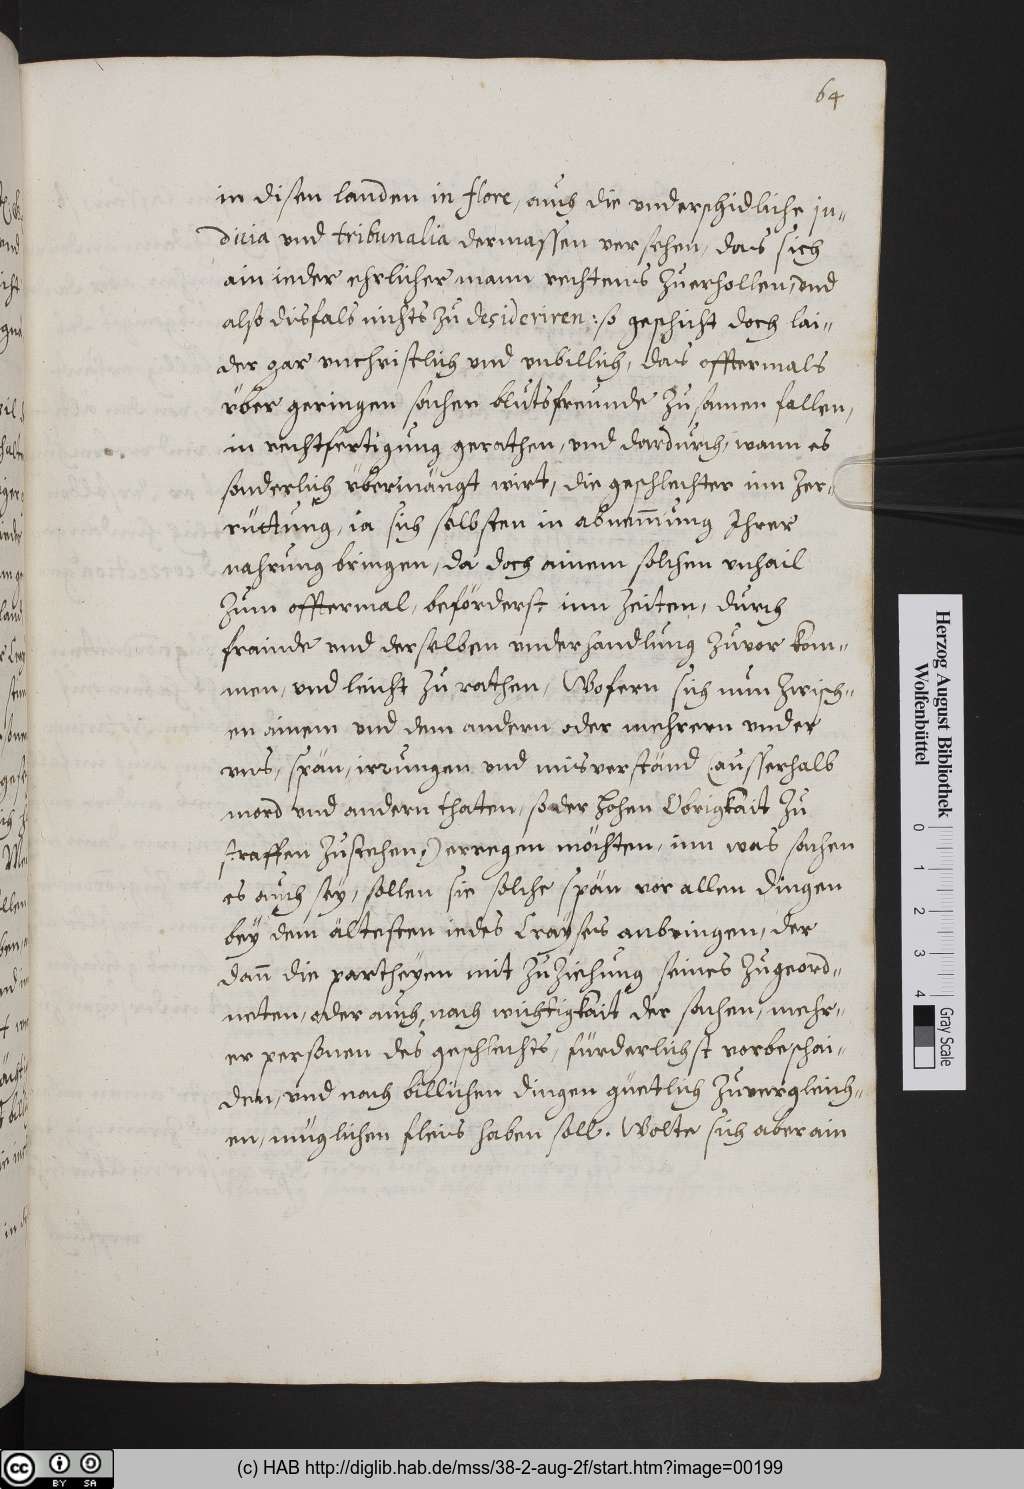 64
in disen landen in flore, auch die underschidliche ju-
dicia und tribunalia dermassen versehen, das sich
ain ieder ehrlicher mann rechtens zuerhollen, und
also disfals nichts zu desideriren: so geschicht doch lai-
der gar unchristlich und unbillich, das offtermals
über geringen sachen blutsfreunde zusamen fallen,
in rechtfertigung gerathen, und dardurch, wann es
sonderlich übermängt wirt, die geschlechter inn zer-
rüttung, ia sich selbsten in abnemung Ihrer
nahrung bringen, da doch ainem solchen unhail
zum offtermal, beförderst inn zeiten, durch
frainde und derselben underhandlung zuvor kom-
men, und leicht zu rathen, Wofern sich nun zwisch-
en ainem und dem andern oder mehrern under
uns, spän, irrungen und misverständ (ausserhalb
mord und andern thaten, so der hohen Obrigkait zu
straffen zustehen,) erregen möchten, inn was sachen
es auch seÿ, sollen sie solche spän vor allen dingen
beÿ dem ältesten iedes Crayses anbringen, der
dann die partheÿen mit zuziehung seines zugeord-
neten, oder auch, nach wichtigkait der sachen, mehr-
er personen des geschlechts, fürderlichst vorbeschai-
den, und nach billichen dingen güetlich zuvergleich-
en, müglichen fleis haben soll. Wolte sich aber ain
Herzog August Bibliothek
Wolfenbüttel
0 1 2 3 4
Gray Scale
CC BY SA
(c) HAB http://diglib.hab.de/mss/38-2-aug-2f/start.htm?image=00199